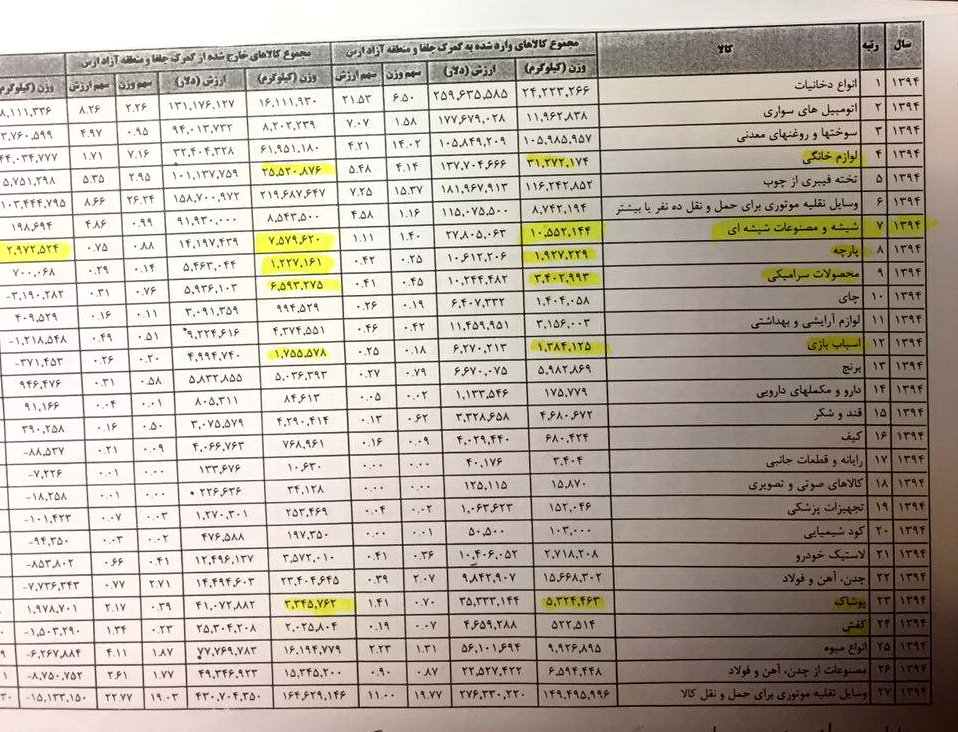 سال رتبه کالا مجموع کالاهای وارد شده به گمرک جلفا و منطقه آزاد ارس مجموع کالاهای خارج شده از گمرک جلفا و منطقه آزاد ارس
وزن (کیلوگرم) ارزش (دلار) سهم وزن سهم ارزش وزن (کیلوگرم) ارزش (دلار) سهم وزن سهم ارزش وزن (کیلوگرم
۱۳۹۴ ۱ انواع دخانیات ۲۴,۲۲۳,۲۶۶ ۲۵۹,۶۳۵,۵۸۵ ۶.۵۰ ۲۱.۵۳ ۱۶,۱۱۱,۹۳۰ ۱۳۱,۱۷۶,۱۲۷ ۲.۲۶ ۸.۲۶ ۸,۱۱۱,۳۳۶
۱۳۹۴ ۲ اتومبیل های سواری ۱۱,۹۶۲,۸۳۸ ۱۷۷,۶۷۹,۰۲۸ ۱.۵۸ ۷.۰۷ ۸,۲۰۲,۲۳۹ ۹۴,۰۱۳,۷۳۲ ۰.۹۵ ۴.۹۷ ۳,۷۶۰,۵۹۹
۱۳۹۴ ۳ سوختها و روغنهای معدنی ۱۰۵,۹۸۵,۹۵۷ ۱۰۵,۸۴۹,۲۰۹ ۱۴.۰۲ ۴.۲۱ ۶۱,۹۵۱,۱۸۰ ۳۲,۴۰۴,۳۲۸ ۷.۱۶ ۱.۷۱ ۴۴,۰۳۴,۷۷۷
۱۳۹۴ ۴ لوازم خانگی ۳۱,۲۷۲,۱۷۴ ۱۳۷,۷۰۴,۶۶۶ ۴.۱۴ ۵.۴۸ ۲۵,۵۲۰,۸۷۶ ۱۰۱,۱۳۷,۷۵۹ ۲.۹۵ ۵.۳۵ ۵,۷۵۱,۲۹۸
۱۳۹۴ ۵ تخته فیبری از چوب ۱۱۶,۲۴۲,۸۵۲ ۱۸۱,۹۶۷,۹۱۳ ۱۵.۳۷ ۷.۲۵ ۲۱۹,۶۸۷,۶۴۷ ۱۵۸,۷۰۰,۹۷۲ ۲۶.۲۴ ۸.۶۶ ۱۰۳,۴۴۴,۷۹۵
۱۳۹۴ ۶ وسایل نقلیه موتوری برای حمل و نقل ده نفر یا بیشتر ۸,۷۴۲,۱۹۴ ۱۱۵,۰۷۵,۵۰۰ ۱.۱۶ ۴.۵۸ ۸,۵۴۳,۵۰۰ ۹۱,۹۳۰,۰۰۰ ۰.۹۹ ۴.۸۶ ۱۹۸,۶۹۴
۱۳۹۴ ۷ شیشه و مصنوعات شیشه ای ۱۰,۵۵۲,۱۴۴ ۲۷,۸۰۵,۰۶۳ ۱.۴۰ ۱.۱۱ ۷,۵۷۹,۶۲۰ ۱۴,۱۹۷,۴۳۹ ۰.۸۸ ۰.۷۵ ۲,۹۷۲,۵۲۴
۱۳۹۴ ۸ پارچه ۱,۹۲۷,۲۲۹ ۱۰,۶۱۲,۲۰۶ ۰.۲۵ ۰.۴۲ ۱,۲۲۷,۱۶۱ ۵,۴۶۳,۰۴۴ ۰.۱۴ ۰.۲۹ ۷۰۰,۰۶۸
۱۳۹۴ ۹ محصولات سرامیکی ۳,۴۰۲,۹۹۳ ۱۰,۲۴۴,۴۸۲ ۰.۴۵ ۰.۴۱ ۶,۵۹۳,۲۷۵ ۵,۹۳۶,۱۰۳ ۰.۷۶ ۰.۳۱ -۳,۱۹۰,۲۸۲
۱۳۹۴ ۱۰ چای ۱,۴۰۴,۰۵۸ ۶,۴۰۷,۳۳۲ ۰.۱۹ ۰.۲۶ ۹۹۴,۵۲۹ ۳,۰۹۱,۳۵۹ ۰.۱۱ ۰.۱۶ ۴۰۹,۵۲۹
۱۳۹۴ ۱۱ لوازم آرایشی و بهداشتی ۳,۱۵۶,۰۰۳ ۱۱,۴۵۹,۹۵۱ ۰.۴۲ ۰.۴۶ ۴,۳۷۴,۵۵۱ ۹,۲۲۴,۶۱۶ ۰.۵۱ ۰.۴۹ -۱,۲۱۸,۵۴۸
۱۳۹۴ ۱۲ اسباب بازی ۱,۳۸۴,۱۲۵ ۶,۲۷۰,۲۱۳ ۰.۱۸ ۰.۲۵ ۱,۷۵۵,۵۷۸ ۴,۹۹۴,۷۴۰ ۰.۲۰ ۰.۲۶ -۳۷۱,۴۵۳
۱۳۹۴ ۱۳ برنج ۵,۹۸۲,۸۶۹ ۶,۶۷۰,۰۷۵ ۰.۷۹ ۰.۲۷ ۵,۰۳۶,۳۹۳ ۵,۸۳۲,۸۵۵ ۰.۵۸ ۰.۳۱ ۹۴۶,۴۷۶
۱۳۹۴ ۱۴ دارو و مکملهای دارویی ۱۷۵,۷۷۹ ۱,۱۳۳,۵۴۶ ۰.۰۲ ۰.۰۵ ۸۴,۶۱۳ ۸۰۵,۳۱۱ ۰.۰۱ ۰.۰۴ ۹۱,۱۶۶
۱۳۹۴ ۱۵ قند و شکر ۴,۶۸۰,۶۷۲ ۳,۳۲۸,۶۵۸ ۰.۶۲ ۰.۱۳ ۴,۲۹۰,۴۱۴ ۳,۰۷۵,۵۷۹ ۰.۵۰ ۰.۱۶ ۳۹۰,۲۵۸
۱۳۹۴ ۱۶ کیف ۶۸۰,۴۲۴ ۴,۰۲۹,۴۴۰ ۰.۰۹ ۰.۱۶ ۷۶۸,۹۶۱ ۴,۰۶۶,۷۶۳ ۰.۰۹ ۰.۲۱ -۸۸,۵۳۷
۱۳۹۴ ۱۷ رایانه و قطعات جانبی ۳,۴۰۴ ۴۰,۱۷۶ ۰.۰۰ ۰.۰۰ ۱۰,۶۳۰ ۱۳۳,۶۷۶ ۰.۰۰ ۰.۰۱ -۷,۲۲۶
۱۳۹۴ ۱۸ کالاهای صوتی و تصویری ۱۵,۸۷۰ ۱۲۵,۱۱۵ ۰.۰۰ ۰.۰۰ ۳۴,۱۲۸ ۲۲۶,۶۳۶ ۰.۰۰ ۰.۰۱ -۱۸,۲۵۸
۱۳۹۴ ۱۹ تجهیزات پزشکی ۱۵۲,۰۴۶ ۱,۰۶۳,۶۲۳ ۰.۰۲ ۰.۰۴ ۲۵۳,۴۶۹ ۱,۲۷۰,۳۰۱ ۰.۰۳ ۰.۰۷ -۱۰۱,۴۲۳
۱۳۹۴ ۲۰ کود شیمیایی ۱۰۳,۰۰۰ ۵۰,۵۰۰ ۰.۰۱ ۰.۰۰ ۱۹۷,۳۵۰ ۴۷۶,۵۸۸ ۰.۰۲ ۰.۰۳ -۹۴,۳۵۰
۱۳۹۴ ۲۱ لاستیک خودرو ۲,۷۱۸,۲۰۸ ۱۰,۴۰۶,۰۵۲ ۰.۳۶ ۰.۴۱ ۳,۵۷۲,۰۱۰ ۱۲,۴۹۶,۱۳۷ ۰.۴۱ ۰.۶۶ -۸۵۳,۸۰۲
۱۳۹۴ ۲۲ چدن، آهن و فولاد ۱۵,۶۶۸,۳۰۲ ۹,۸۴۲,۹۰۷ ۲.۰۷ ۰.۳۹ ۲۳,۴۰۴,۶۴۵ ۱۴,۴۹۴,۶۰۳ ۲.۷۱ ۰.۷۷ -۷,۷۳۶,۳۴۳
۱۳۹۴ ۲۳ پوشاک ۵,۳۲۴,۴۶۳ ۳۵,۳۳۳,۱۴۴ ۰.۷۰ ۱.۴۱ ۳,۳۴۵,۷۶۲ ۴۱,۰۷۲,۸۸۲ ۰.۳۹ ۲.۱۷ ۱,۹۷۸,۷۰۱
۱۳۹۴ ۲۴ کفش ۵۲۲,۵۱۴ ۴,۶۵۹,۲۸۸ ۰.۰۷ ۰.۱۹ ۲,۰۲۵,۸۰۴ ۲۵,۳۰۴,۲۰۸ ۰.۲۳ ۱.۳۴ -۱,۵۰۳,۲۹۰
۱۳۹۴ ۲۵ انواع میوه ۹,۹۲۶,۸۹۵ ۵۶,۱۰۱,۶۹۴ ۱.۳۱ ۲.۲۳ ۱۶,۱۹۴,۷۷۹ ۷۷,۷۶۹,۷۸۳ ۱.۸۷ ۴.۱۱ -۶,۲۶۷,۸۸۴
۱۳۹۴ ۲۶ مصنوعات از چدن، آهن و فولاد ۶,۵۹۴,۴۴۸ ۲۲,۵۲۷,۴۲۲ ۰.۸۷ ۰.۹۰ ۱۵,۳۴۵,۲۰۰ ۴۹,۳۴۶,۹۲۳ ۱.۷۷ ۲.۶۱ -۸,۷۵۰,۷۵۲
۱۳۹۴ ۲۷ وسایل نقلیه موتوری برای حمل و نقل کالا ۱۴۹,۴۹۵,۹۹۶ ۲۷۶,۳۳۰,۲۲۰ ۱۹.۷۷ ۱۱.۰۰ ۱۶۴,۶۲۹,۱۴۶ ۴۳۰,۷۰۴,۳۵۰ ۱۹.۰۳ ۲۲.۷۷ -۱۵,۱۳۳,۱۵۰